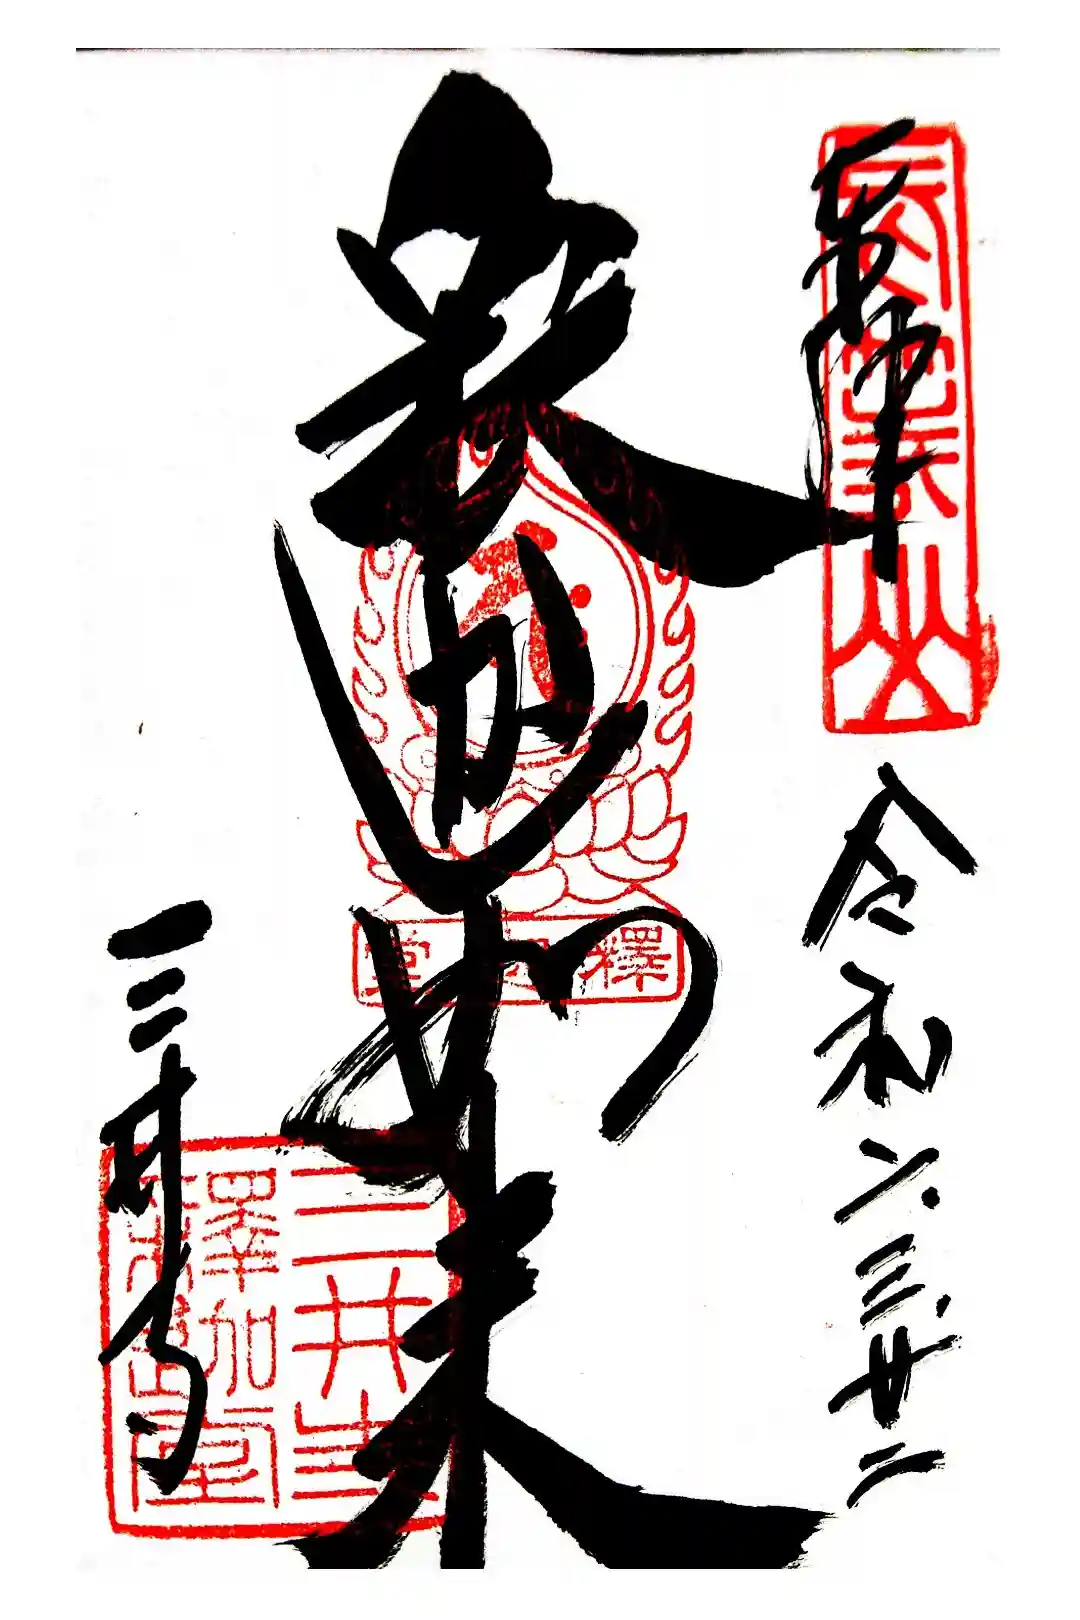 奉拝
長等山
令和六.三.廿二
釈迦如来
釋迦堂
三井寺
三井寺
釋迦堂